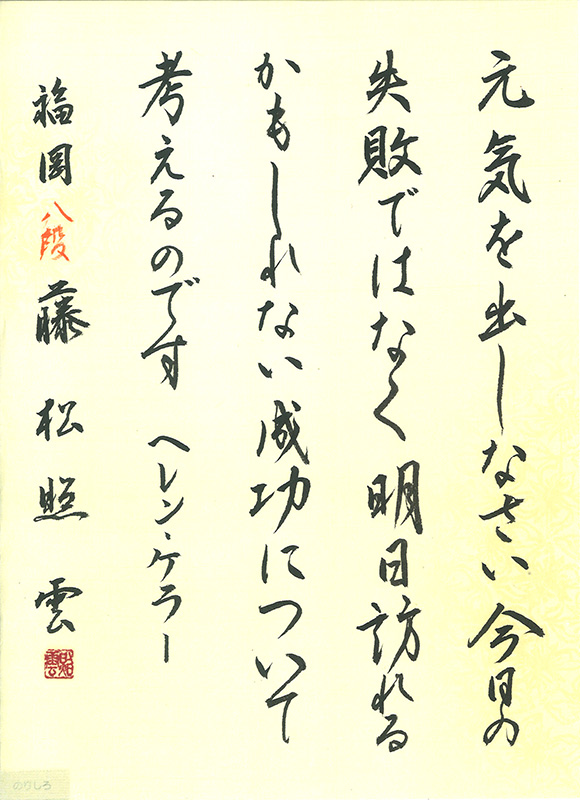 元気を出しなさい今日の
失敗ではなく明日訪れる
かもしれない成功について
考えるのです ヘレン・ケラー
福岡 八段 藤松照雲
照雲
のりしろ